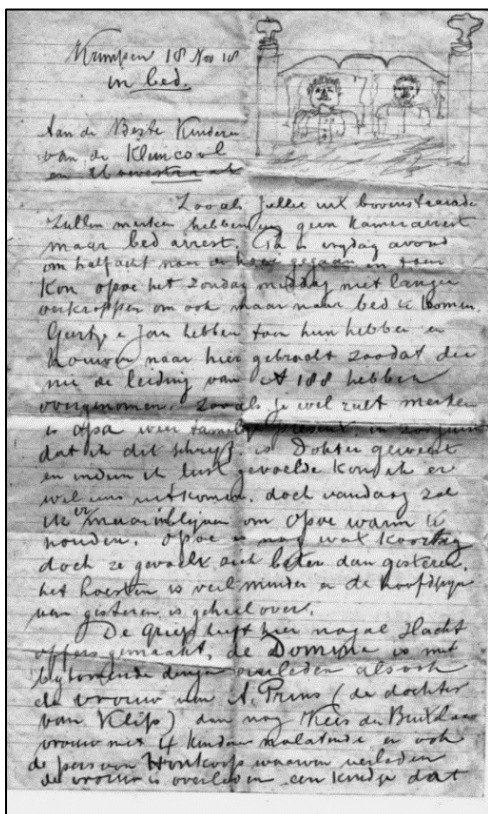 Krimpen 18 Nov 18
in bed.
Aan de Beste Kinderen
van de
en
Zooals jullie uit bovenstaande
zullen merken hebben wij geen kamerarrest
maar bed arrest. Ik vrydag avond
om half acht naar de gegaan en toen
kon opoe het Zondag middag niet langer
verkroppen om ook maar naar bed te komen.
Gertje e Jan hebben toen hun hebben en
houwen naar hier gebracht zoodat die
nu de leiding van A 188 hebben
overgenomen. Zooals je wel zult merken
is opa weer tamelyk present, in
dat ik dit schryf is Dokter geweest
en indien ik lust gevoelde kon ik er
wel eens uitkomen, doch vandaag zal
ik er maar inblyven om Opoe warm te
houden. Opoe is nog wat koortsig
doch ze gevoelt zich beter dan gisteren,
het hoesten is veel minder en de hoofdpyn
van gisteren is geheel over.
De Griep heeft hier nogal slacht
offers gemaakt, de Domine is met
bykomende dingen overleden alsook
de vrouw van A. Prins (de dochter
van Klip) dan nog Kees den
vrouw met 4 kinderen nalatende en ook
de persoon waarvan verleden
de vrouw is overleden een kindje dat